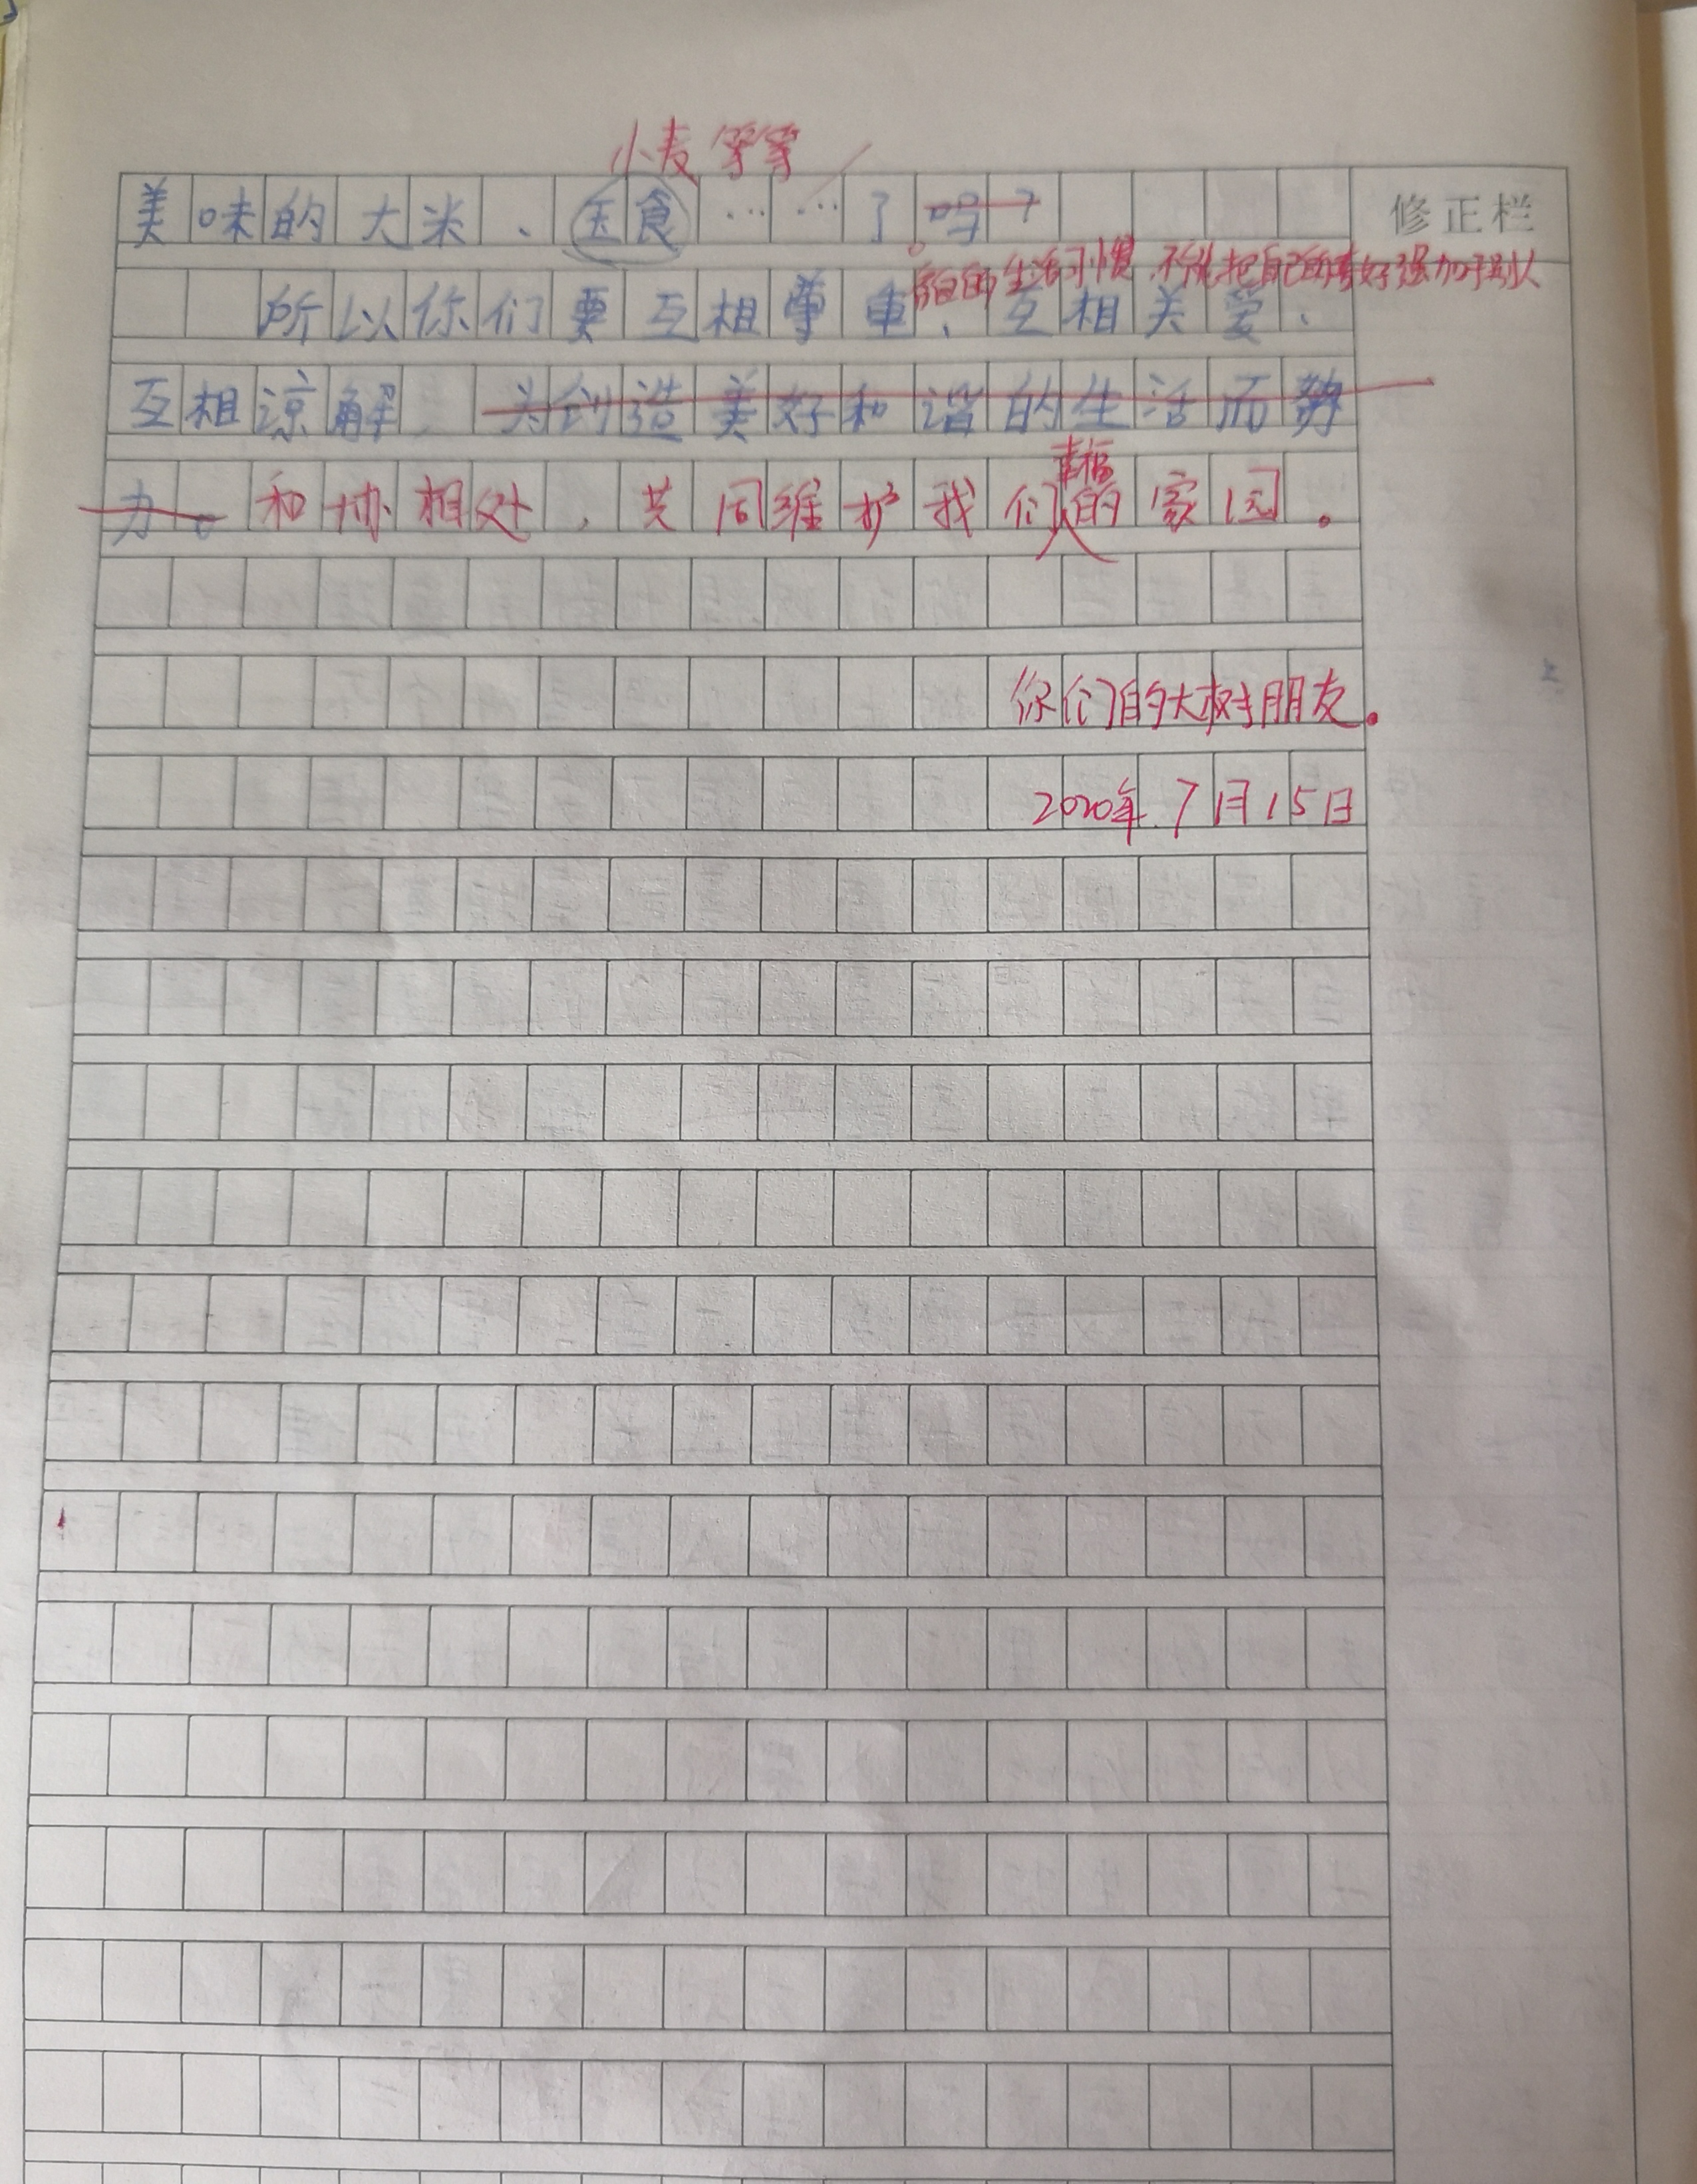 小麦等等
美味的大米、玉食……了吗?
修正栏
的生活习惯 不能把自己的喜好强加于别人
所以你们要互相尊重、互相关爱、
互相谅解 为创造美好和谐的生活而努
力。和协相处,共同维护我们的家园。
幸福
你们的大树朋友。
2020年7月15日